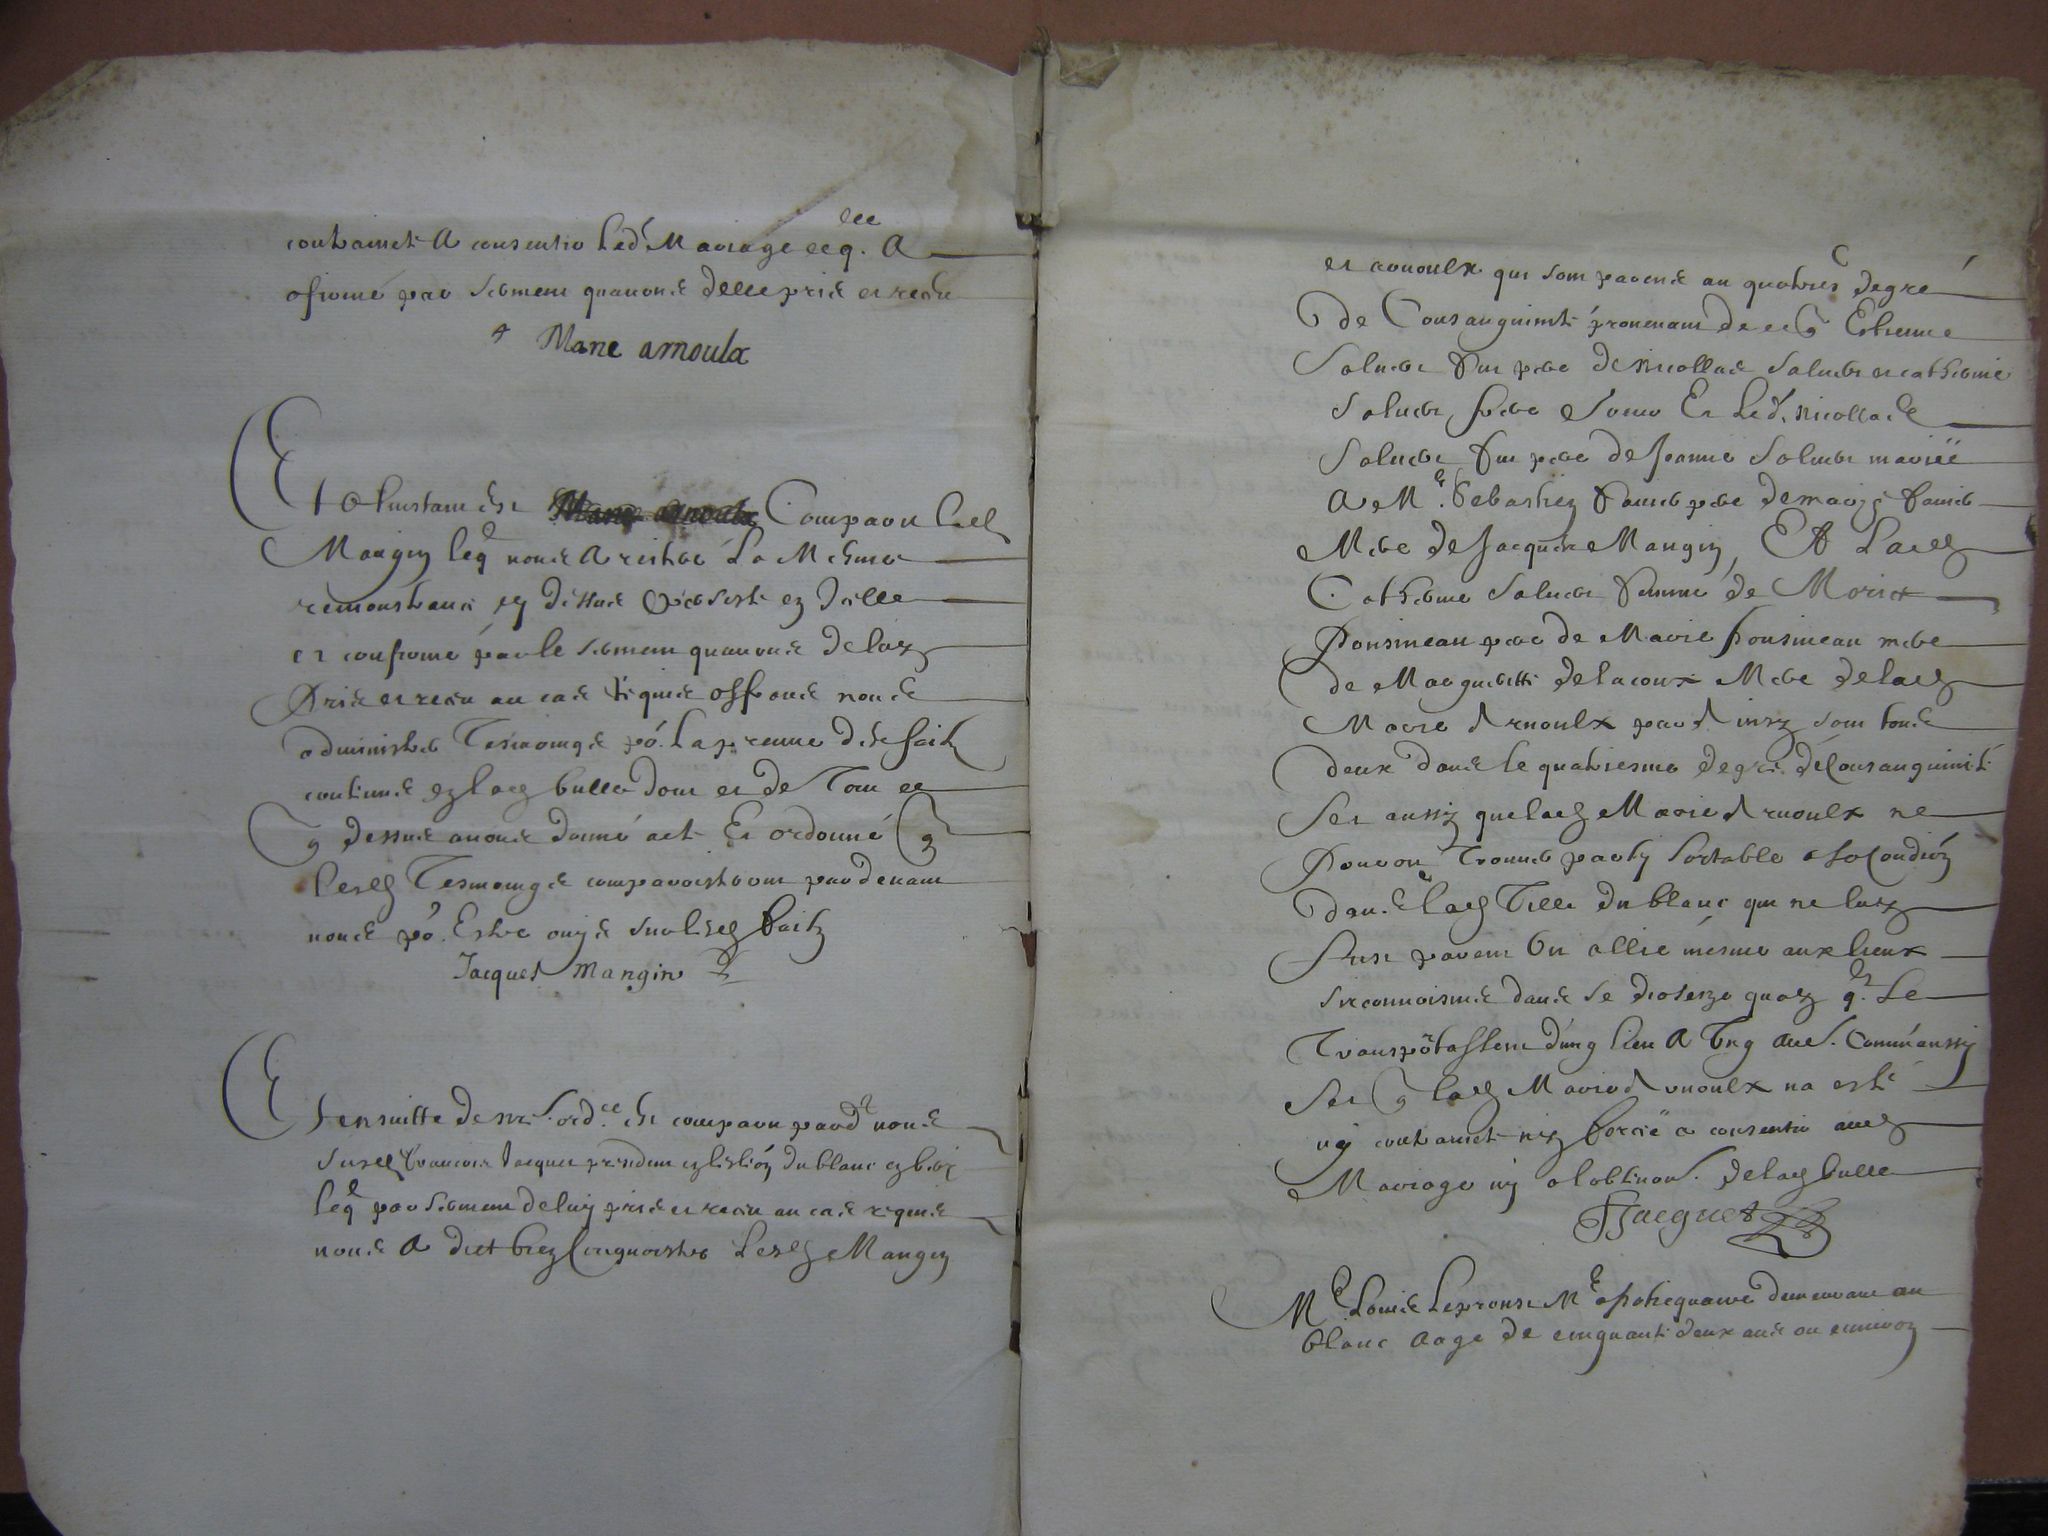 contrainct A consentir led. Mariage ce q. elle A
afirmé par serment quavons delle pris et receu
Marie arnoulx
Et A linstant est Marie arnoulx Comparu led
Mangin leq nous A reitéré La Mesme
remonstrance cy dessus Inserée en Icelle
et confirmé par le serment quavons de luy
Pris et receu au cas requis offrant nous
administrer Tesmoings po. la preuve des faits
contenus en lad bulle dont et de Tout ce
q dessus avons donné acte Et ordonné q
lesd Tesmoings comparoistront pardevant
nous po. Estre ouys sur lesd faits
Jacques Mangin
Et ensuitte de nre. ord.ce est comparu pard.t nous
Sieur françois Jacquet president en leslection du blanc en berry
leq par serment de luy pris et receu au cas requis
nous A dict bien Congnoistre Lesd Mangin
et arnoulx qui sont parens au quatries degré
de Consanguinité provenant de ce q Estienne
Saluder fut pere de Nicollas Saluder et catherine
Saluder, frere et soeur Et Led. Nicollas
Saluder fut pere de Jeanne Saluder mariée
A Me. Sebastien faure pere de marye faure
Mere de Jacques Mangin, Et Lad
Catherine Saluder femme de Morice
Ponsineau pere de Marie Ponsineau mere
de Margueritte delacoux Mere de lad
Marie Arnoulx par Ainsy sont tous
deux dans le quatriesme degré de Consanguinité
Scet aussy que lad Marie Arnoulx ne
Pouvoit Trouver party Sortable a sa Condion
dans lad Ville du blanc qui ne luy
fust parent ou allié mesme aux lieux
sirconvoisins dans le dioseze quoy q.
Transportassent d'ung lieu A Ung aut. Comme aussy
Scet q lad Marie Arnoulx na esté
ny contraincte ny forcée a consentir aud
Mariage ny a lobtenon. de lad bulle
FJacquet
Me. Louis Leproust Me apoticquaire demeurant au
blanc aagé de cinquante deux ans ou environ